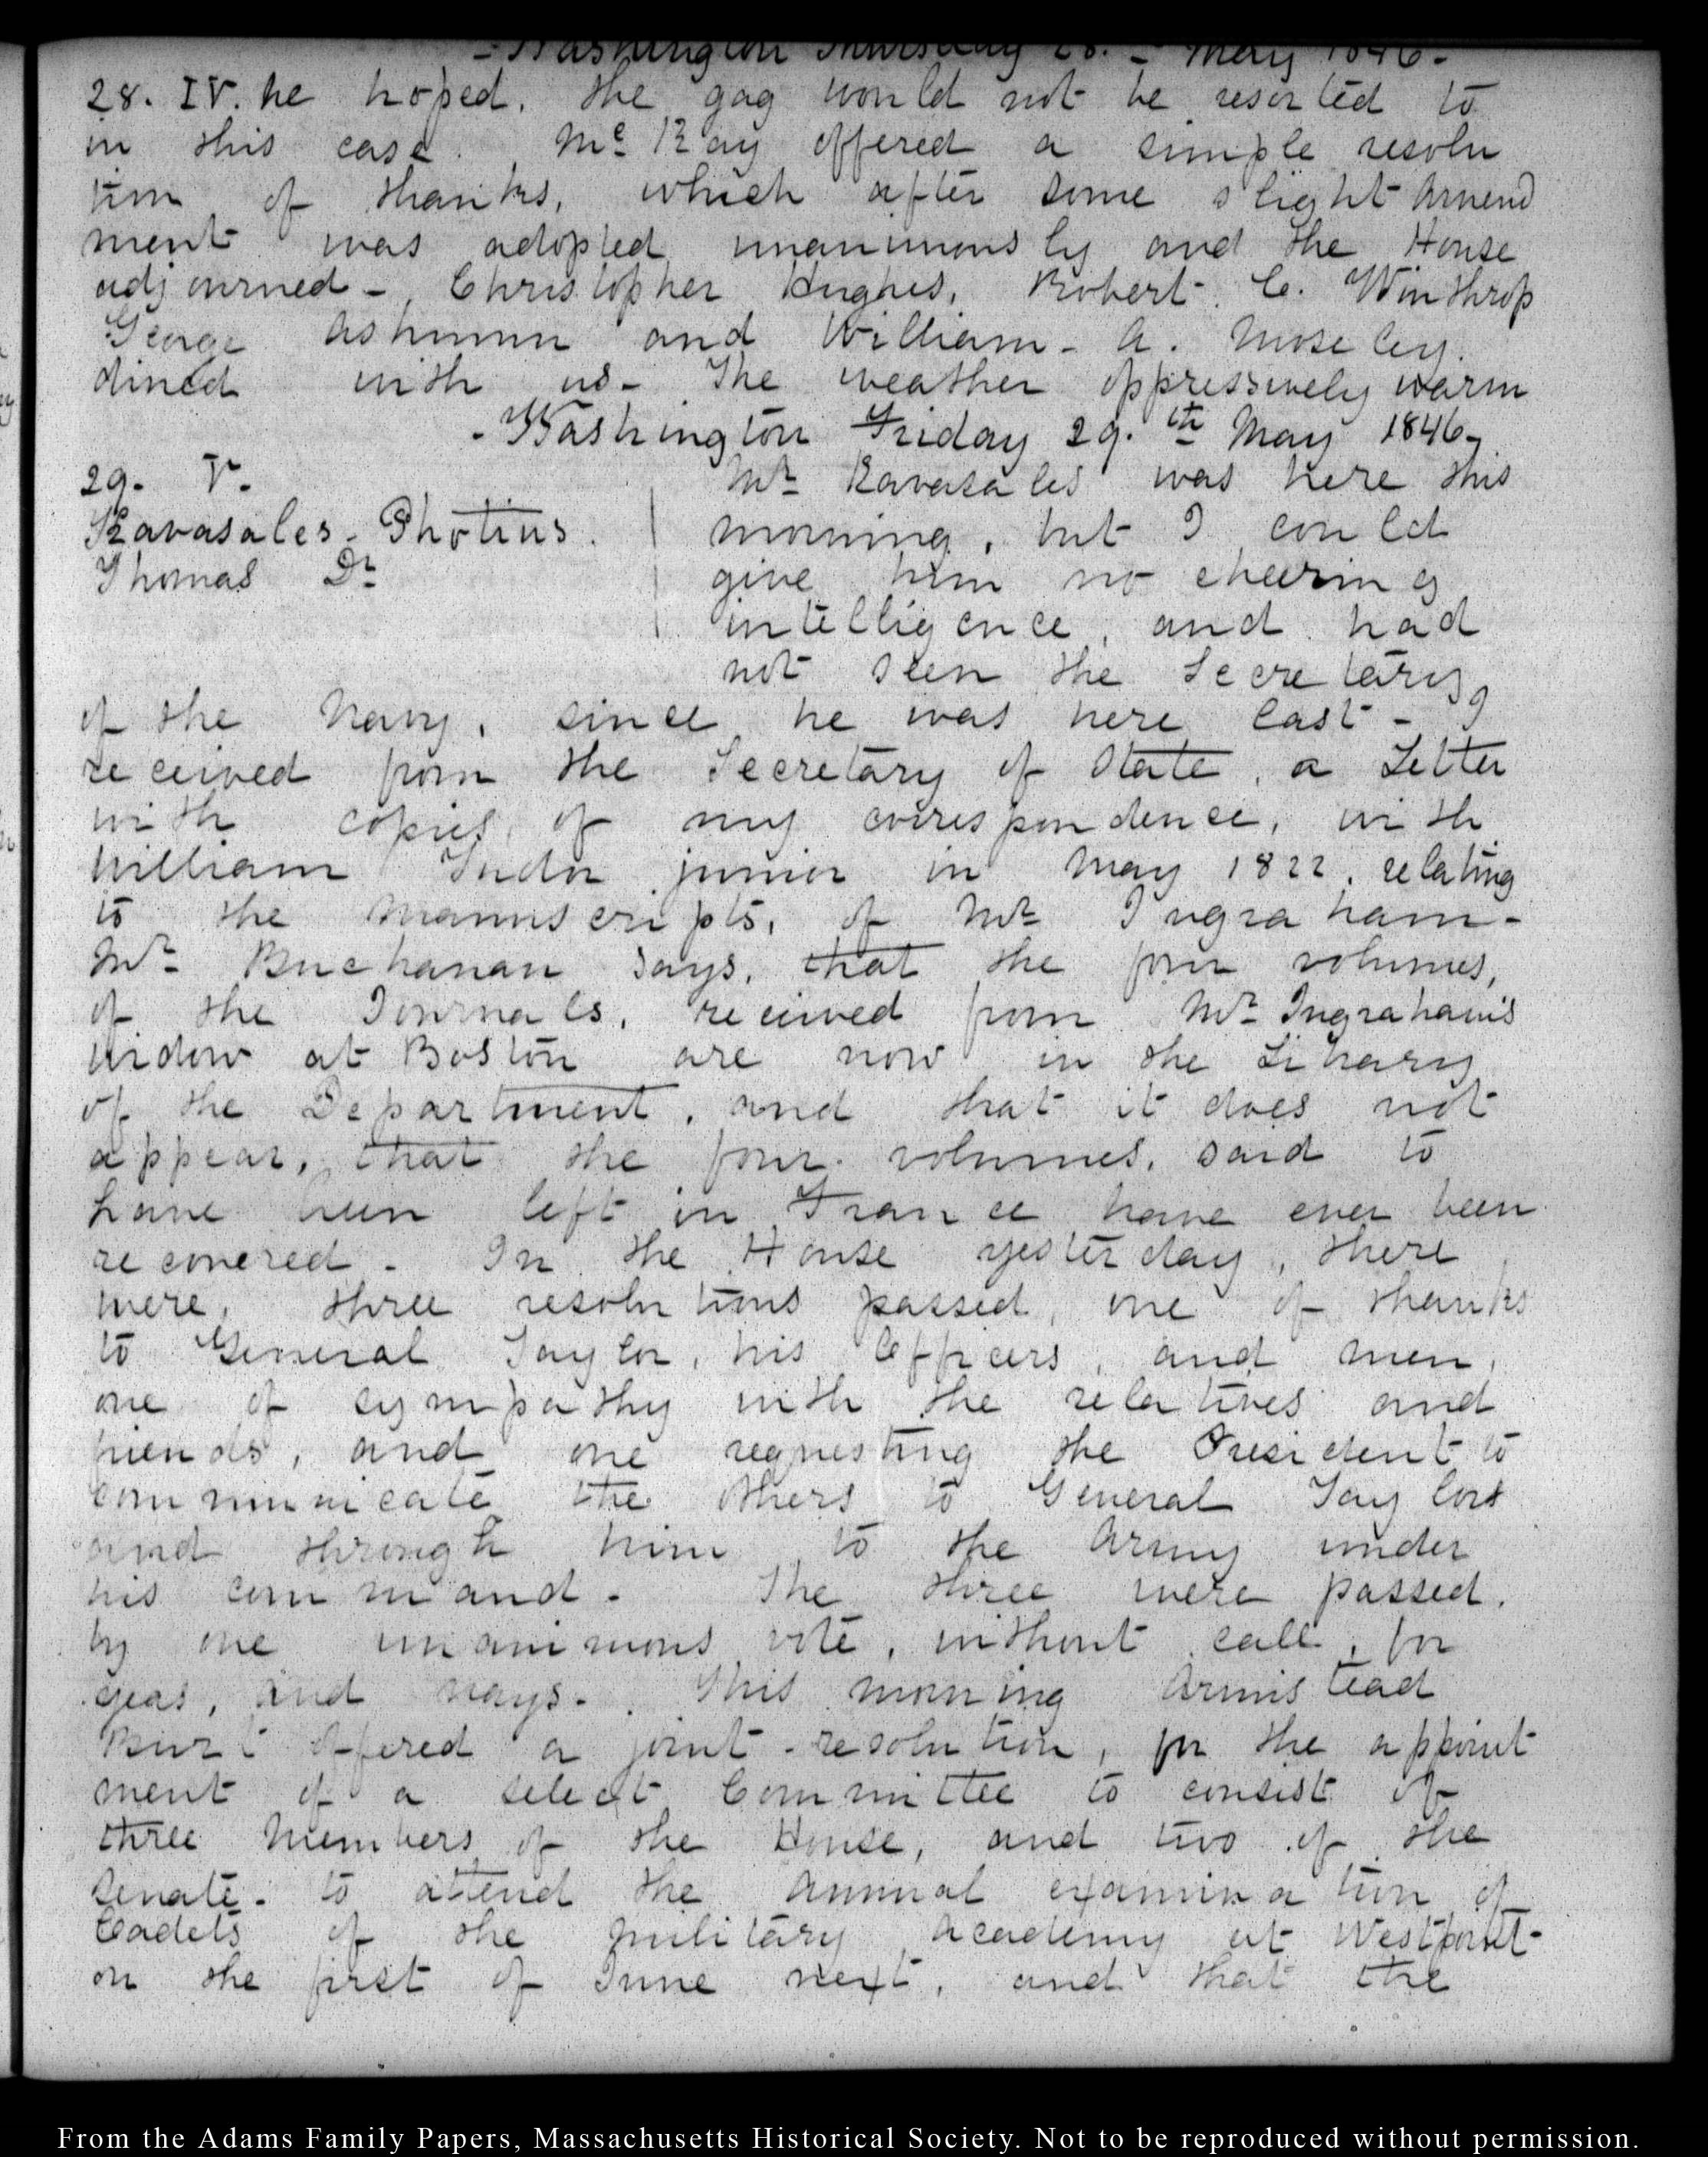 - Washington Thursday 28. - May 1846 -
28. IV. he hoped, the gag would not be resorted to
in this case. Mc Kay offered a simple resolu
tion of thanks, which after some slight amend
ment was adopted unanimously and the House
adjourned -, Christopher Hughes, Robert. C. Winthrop
George Ashmun and William - A. Moseley.
dined with us - The weather oppressively warm
- Washington Friday 29. th May 1846 -
29. V.
Kavasales - Photius.
Thomas Dr
Mr Kavasales was here this
morning, but I could
give him no cheering
intelligence, and had
not seen the Secretary
of the Navy, since he was here last - I
received from the Secretary of State, a Letter
with copies, of my correspondence, with
William Tudor junior in May 1822, relating
to the manuscripts, of Mr Ingraham -
Mr Buchanan says, that the four volumes,
of the Journals, received from Mr Ingraham's
widow at Boston are now in the Library
of the Department, and that it does not
appear, that the four volumes, said to
have been left in France have ever been
recovered - In the House yesterday, there
were, three resolutions passed, one of thanks
to General Taylor, his Officers, and men,
one of sympathy with the relatives and
friends, and one requesting the President to
communicate the others to General Taylor
and through him, to the Army under
his command - The three were passed,
by one unanimous vote, without call, for
yeas, and nays - This morning Armistead
Burt offered a joint - resolution, for the appoint
ment of a select Committee to consist of
three Members of the House, and two of the
Senate - to attend the Annual examination of
Cadets of the military academy at Westpoint -
on the first of June next, and that the
From the Adams Family Papers, Massachusetts Historical Society. Not to be reproduced without permission.